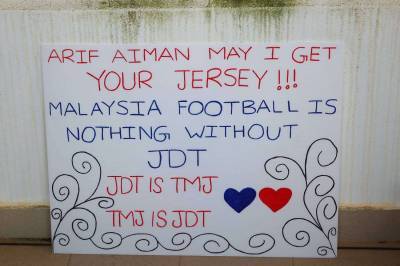 ARIF AIMAN MAY I GET
YOUR JERSEY !!!
MALAYSIA FOOTBALL IS
NOTHING WITHOUT
JDT
JDT IS TMJ
TMJ IS JDT